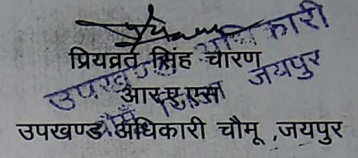 प्रियव्रत सिंह चारण
आर.ए.एस
उपखण्ड अधिकारी चौमू ,जयपुर
उपखण्ड अधिकारी
चौमू जिला जयपुर